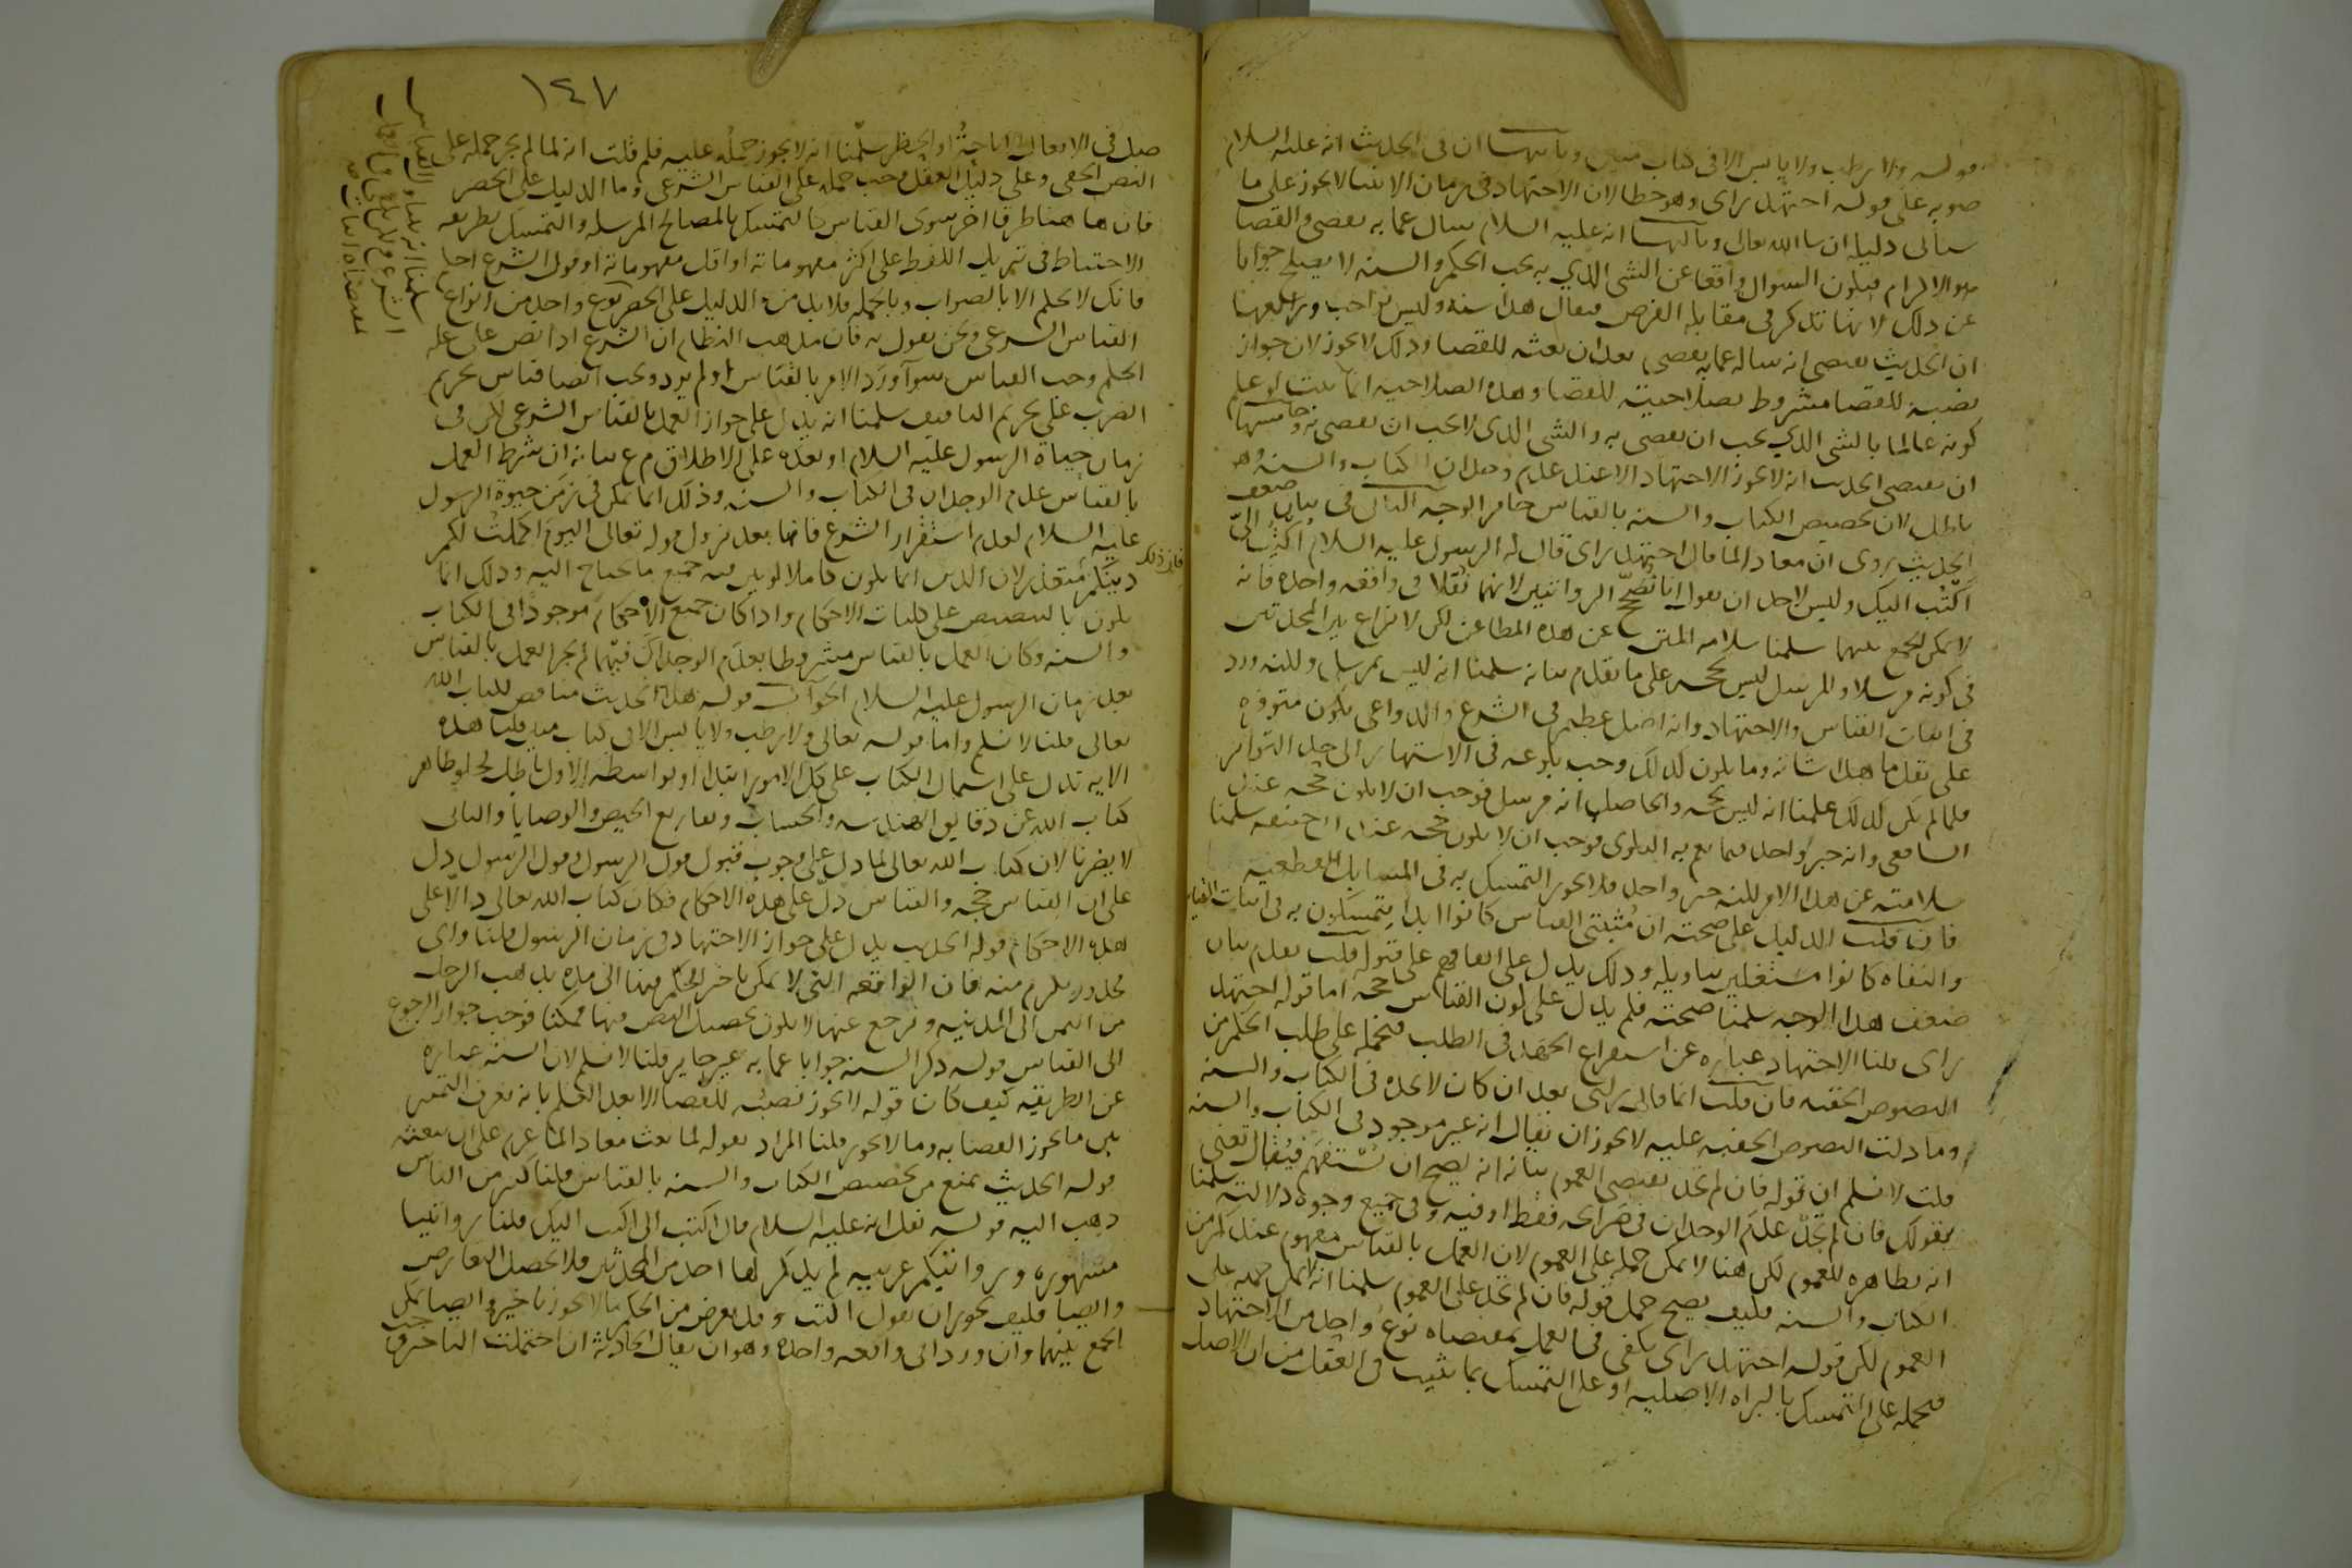 قوله ولا رطب ولا يابس الا في كتاب مبين وثانيها ان في الحديث انه عليه السلام
صوبه على قوله اجتهد راى وهو خطا لان الاجتهاد في زمان الانبيا لا يجوز على ما
سياتى دليله ان شا الله تعالى وثالثها انه عليه السلام سال عما به يقضى والقضا
هو الالزام فيكون السوال واقعا عن الشى الذي به يجب الحكم والسنه لا يصلح جوابا
عن ذلك لانها تذكر في مقابلة الفرض فيقال هذا سنه وليس بواجب ورابعها
ان الحديث يقتضى انه ساله عما به يقضى بعد ان بعثه للقضا وذلك لا يجوز لان جواز
نصبه للقضا مشروط بصلاحيته للقضا وهذه الصلاحيه انما تثبت لو علم
كونه عالما بالشى الذي يجب ان يقضى به والشى الذي لا يجب ان يقضى به وخامسها
ان يقتضى الحديث انه لا يجوز الاجتهاد الا عند عدم وجدان الكتاب والسنه وهو
باطل لان تخصيص الكتاب والسنه بالقياس جايز الوجه الثانى في بيان ضعف
الحديث يروى ان معاذا لما قال اجتهد راى قال له الرسول عليه السلام اكتب الىّ
اكتب اليك وليس لاحد ان يقول انا نصحح الروايتين لانهما نقلا في واقعه واحده فانه
لا يمكن الجمع بينهما سلمنا سلامه المتن عن هذه المطاعن لكن لا نزاع بين المحدثين
في كونه مرسلا والمرسل ليس بحجه على ما تقدم بيانه سلمنا انه ليس بمرسل ولكنه ورد
في اثبات القياس والاجتهاد وانه اصل عظيم في الشرع والدواعى تكون متوفره
على نقل ما هذا شانه وما يكون كذلك وجب بلوغه في الاشتهار الى حد التواتر
فلما لم يكن كذلك علمنا انه ليس بحجه والحاصل انه مرسل فوجب ان لا يكون حجه عند
الشافعى وانه خبر واحد فيما تعم به البلوى فوجب ان لا يكون حجه عند ابى حنيفه سلمنا
سلامته عن هذا الامر لكنه خبر واحد فلا يجوز التمسك به في المسايل القطعيه
فان قلت الدليل على صحته ان مثبتى القياس كانوا ابدا يتمسكون به في اثبات القياس
والنفاه كانوا مشتغلين بتاويله وذلك يدل على اتفاقهم على قبوله قلت تقدم بيان
ضعف هذا الوجه سلمنا صحته فلم يدل على كون القياس حجه اما قوله اجتهد
راى قلنا الاجتهاد عباره عن استفراغ الجهد في الطلب فنحمله على طلب الحكم من
النصوص الخفيه فان قلت انما قال برايى بعد ان كان لا يجده في الكتاب والسنه
وما دلت النصوص الخفيه عليه لا يجوز ان يقال انه غير موجود في الكتاب والسنه
قلت لا نسلم ان قوله فان لم تجد يقتضى العموم بيانه انه يصح ان نستفهم فيقال تعنى
بقولك فان لم تجد عدم الوجدان في صرايحه فقط او فيه وفى جميع وجوه دلالته سلمنا
انه بظاهره للعموم لكن هنا لا يمكن حمله على العموم لان العمل بالقياس مفهوم عندكم من
الكتاب والسنه فكيف يصح حمل قوله فان لم تجد على العموم سلمنا انه يمكن حمله على
العموم لكن قوله اجتهد راى يكفى في العمل بمقتضاه نوع واحد من الاجتهاد
فنحمله على التمسك بالبراه الاصليه او على التمسك بما ثبت في العقل من ان الاصل
١٤٧
صل في الافعال الاباحة او الحظر سلمنا انه لا يجوز حمله عليه فلم قلت انه لما لم يجز حمله على
النص الخفى وعلى دليل العقل وجب حمله على القياس الشرعى وما الدليل على الحصر
فان هاهنا طرقا اخر سوى القياس كالتمسك بالمصالح المرسله والتمسك بطريقه
الاحتياط في تنزيل اللفظ على اكثر مفهوماته او اقل مفهوماته او قول الشرع احكم
فانك لا تحكم الا بالصواب وبالجمله فلا بد من الدليل على الحصر نوع واحد من انواع
القياس الشرعى ونحن نقول به فان مذهب النظام ان الشرع اذا نص على عله
الحكم وجب القياس سوا ورد الامر بالقياس او لم يرد ويجب ايضا قياس تحريم
الضرب على تحريم التافيف سلمنا انه يدل على جواز العمل بالقياس الشرعى لكن في
زمان حياة الرسول عليه السلام او بعده على الاطلاق م ع بيانه ان شرط العمل
بالقياس عدم الوجدان في الكتاب والسنه وذلك انما يمكن في زمن حيوة الرسول
عليه السلام لعدم استقرار الشرع فاما بعد نزول قوله تعالى اليوم اكملت لكم
دينكم فان ذلك متعذر لان الدين انما يكون كاملا لو بين فيه جميع ما يحتاج اليه وذلك انما
يكون بالتنصيص على كليات الاحكام واذا كان جميع الاحكام موجودا في الكتاب
والسنه وكان العمل بالقياس مشروطا بعدم الوجدان فيهما لم يجز العمل بالقياس
بعد زمان الرسول عليه السلام الجواب قوله هذا الحديث مناقض لكتاب الله
تعالى قلنا لا نسلم واما قوله تعالى ولا رطب ولا يابس الا في كتاب مبين قلنا هذه
الايه تدل على اشتمال الكتاب على كل الامور ابتدا او بواسطه الاول باطل لخلو ظاهر
كتاب الله عن دقايق الهندسه والحساب وتفاريع الحيض والوصايا والثانى
لا يضرنا لان كتاب الله تعالى لما دل على وجوب قبول قول الرسول وقول الرسول دل
على ان القياس حجه والقياس دل على هذه الاحكام فكان كتاب الله تعالى دالا على
هذه الاحكام قوله الحديث يدل على جواز الاجتهاد في زمان الرسول قلنا واى
محذور يلزم منه فان الواقعه التى لا يمكن تاخير الحكم فيها الى مده يذهب الرجل
من اليمن الى المدينه ويرجع عنها لا يكون تحصيل النص فيها ممكنا فوجب جواز الرجوع
الى القياس قوله ذكر السنه جوابا عما به غير جايز قلنا لا نسلم لان السنه عباره
عن الطريقه كيف كان قوله لا يجوز نصبه للقضا الا بعد العلم بانه يعرف التمييز
بين ما يجوز القضا به وما لا يجوز قلنا المراد بقوله لما بعث معاذا لما عزم على ان يبعثه
قوله الحديث يمنع من تخصيص الكتاب والسنه بالقياس قلنا كثير من الناس
ذهب اليه قوله نقل انه عليه السلام قال اكتب الى اكتب اليك قلنا روايتنا
مشهوره وروايتكم غريبه لم يذكرها احد من المحدثين فلا يحصل التعارض
وايضا فكيف يجوز ان يقول اكتب وقد يعرض من الحكم ما لا يجوز تاخيره وايضا يمكن
الجمع بينهما وان وردا في واقعه واحده وهو ان يقال الحادثه ان احتملت التاخير وجب